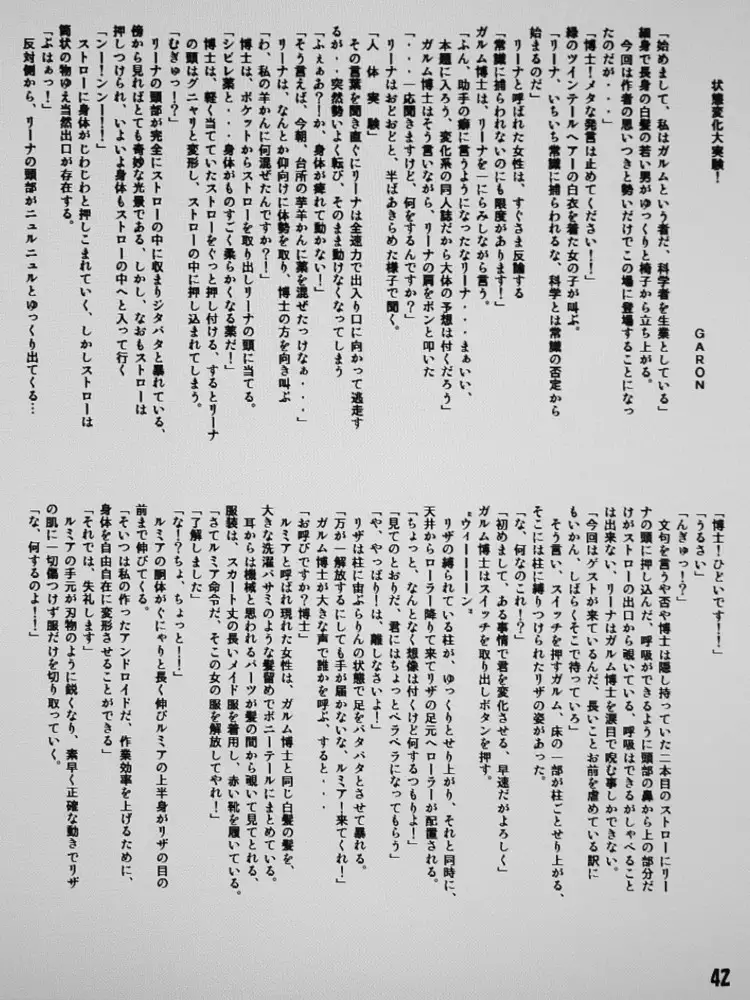 状態変化大実験！
GARON
「始めまして、私はガルムという者だ、科学者を生業としている」
細身で長身の白髪の若い男がゆっくりと椅子から立ち上がる。
今回は作者の思いつきと勢いだけでこの場に登場することになっ
たのだが・・・」
「博士！メタな発言は止めてください！！」
緑のツインテールヘアーの白衣を着た女の子が叫ぶ。
「リーナ、いちいち常識に捕らわれるな、科学とは常識の否定から
始まるのだ」
リーナと呼ばれた女性は、すぐさま反論する
「常識に捕らわれないのにも限度があります！」
ガルム博士は、リーナを一にらみしながら言う。
「ふん、助手の癖に言うようになったなリーナ・・・まぁいい、
本題に入ろう、変化系の同人誌だから大体の予想は付くだろう」
ガルム博士はそう言いながら、リーナの肩をポンと叩いた
「・・・一応聞きますけど、何をするんですか？」
リーナはおどおどと、半ばあきらめた様子で聞く。
「人　体　実　験」
その言葉を聞き直ぐにリーナは全速力で出入り口に向かって逃走す
るが・・突然勢いよく転び、そのまま動けなくなってしまう
「ふぇぁあ？！か、身体が痺れて動かない！」
「そう言えば、今朝、台所の芋羊かんに薬を混ぜたっけなぁ・・・」
リーナは、なんとか仰向けに体勢を取り、博士の方を向き叫ぶ
「わ、私の羊かんに何混ぜたんですか？！」
博士は、ポケットからストローを取り出しリーナの頭に当てる。
「シビレ薬と・・・身体がものすごく柔らかくなる薬だ！」
博士は、軽く当てていたストローをぐっと押し付ける、するとリーナ
の頭はグニャリと変形し、ストローの中に押し込まれてしまう。
「むぎゅっ！？」
リーナの頭部が完全にストローの中に収まりジタバタと暴れている、
傍から見ればとても奇妙な光景である、しかし、なおもストローは
押しつけられ、いよいよ身体もストローの中へと入って行く
「ンー！ンンー！！」
ストローに身体がじわじわと押しこまれていく、しかしストローは
筒状の物ゆえ当然出口が存在する。
「ぷはぁっ！」
反対側から、リーナの頭部がニュルニュルとゆっくり出てくる…
「博士！ひどいです！！」
「うるさい」
「んぎゅっ！？」
文句を言うや否や博士は隠し持っていた二本目のストローにリー
ナの頭に押し込んだ、呼吸ができるように頭部の鼻から上の部分だ
けがストローの出口から覗いている、呼吸はできるがしゃべること
は出来ない、リーナはガルム博士を涙目で睨む事しかできない。
「今回はゲストが来ているんだ、長いことお前を虐めている訳に
もいかん、しばらくそこで待っていろ」
そう言い、スイッチを押すガルム、床の一部が柱ごとせり上がる、
そこには柱に縛りつけられたリザの姿があった。
「な、何なのこれ！？」
「初めまして、ある事情で君を変化させる、早速だがよろしく」
ガルム博士はスイッチを取り出しボタンを押す。
“ウィーーーーン”
リザの縛られている柱が、ゆっくりとせり上がり、それと同時に、
天井からローラー降りて来てリザの足元へローラーが配置される。
「ちょっと、なんとなく想像は付くけど何するつもりよ！」
「見てのとおりだ、君にはちょっとペラペラになってもらう」
「や、やっぱり！は、離しなさいよ！」
リザは柱に宙ぶらりんの状態で足をバタバタとさせて暴れる。
「万が一解放するにしても手が届かないな、ルミア！来てくれ！」
ガルム博士が大きな声で誰かを呼ぶ、すると・・・
「お呼びですか？博士」
ルミアと呼ばれ現れた女性は、ガルム博士と同じ白髪の髪を、
大きな洗濯バサミのような髪留めでポニーテールにまとめている。
耳からは機械と思われるパーツが髪の間から覗いて見てとれる、
服装は、スカート丈の長いメイド服を着用し、赤い靴を履いている。
「さてルミア命令だ、そこの女の服を解放してやれ！」
「了解しました」
「な！？ちょ、ちょっと！！」
ルミアの胴体がぐにゃりと長く伸びルミアの上半身がリザの目の
前まで伸びてくる。
「そいつは私の作ったアンドロイドだ、作業効率を上げるために、
身体を自由自在に変形させることができる」
「それでは、失礼します」
ルミアの手元が刃物のように鋭くなり、素早く正確な動きでリザ
の肌に一切傷つけず服だけを切り取っていく。
「な、何するのよ！！」
42